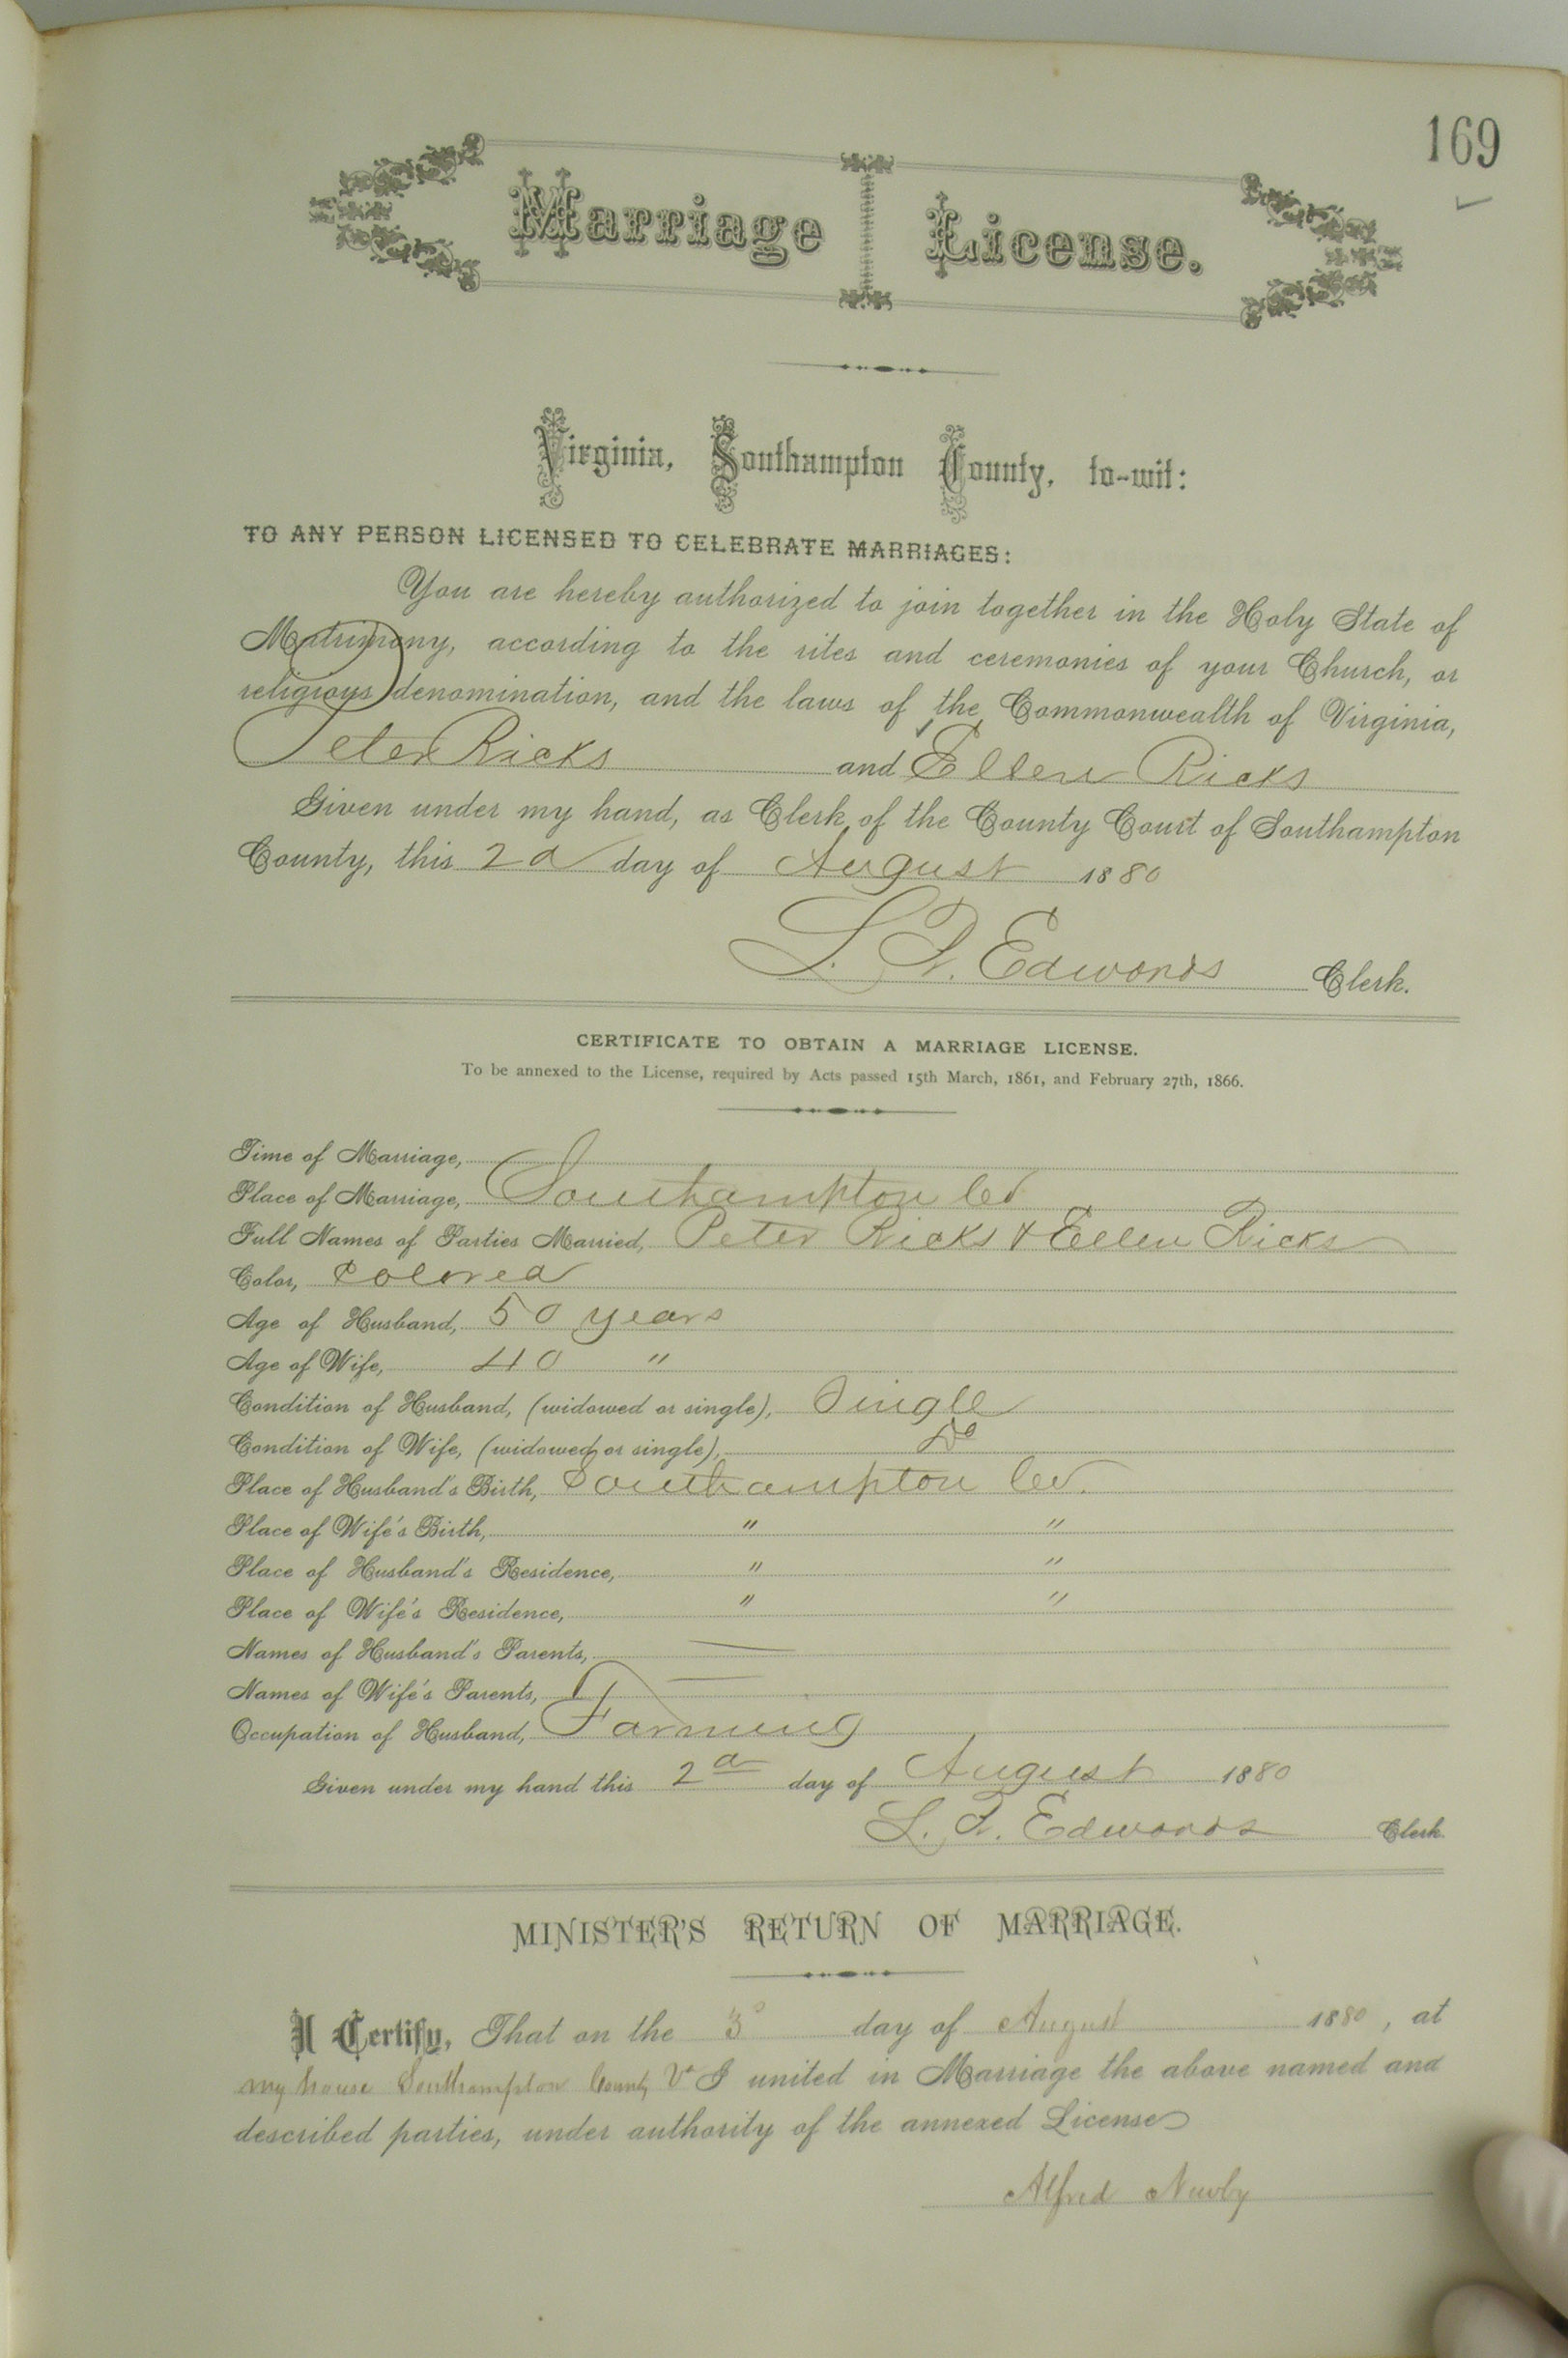 169
Marriage License.
Virginia, Southampton County, to-wit:
TO ANY PERSON LICENSED TO CELEBRATE MARRIAGES:
You are hereby authorized to join together in the Holy State of
Matrimony, according to the rites and ceremonies of your Church, or
religious denomination, and the laws of the Commonwealth of Virginia,
Peter Ricks and Ellen Ricks
Given under my hand, as Clerk of the County Court of Southampton
County, this 2d day of August 1880
L. R. Edwards Clerk.
CERTIFICATE TO OBTAIN A MARRIAGE LICENSE.
To be annexed to the License, required by Acts passed 15th March, 1861, and February 27th, 1866.
Time of Marriage,
Place of Marriage, Southampton Co
Full Names of Parties Married, Peter Ricks & Ellen Ricks
Color, Colored
Age of Husband, 50 years
Age of Wife, 40 "
Condition of Husband, (widowed or single), Single
Condition of Wife, (widowed or single), Do
Place of Husband's Birth, Southampton Co.
Place of Wife's Birth, " "
Place of Husband's Residence, " "
Place of Wife's Residence, " "
Names of Husband's Parents, —
Names of Wife's Parents, —
Occupation of Husband, Farming
Given under my hand this 2d day of August 1880
L. R. Edwards Clerk.
MINISTER'S RETURN OF MARRIAGE.
I Certify, That on the 3d day of August 1880, at
my house Southampton County Va I united in Marriage the above named and
described parties, under authority of the annexed License
Alfred Newby